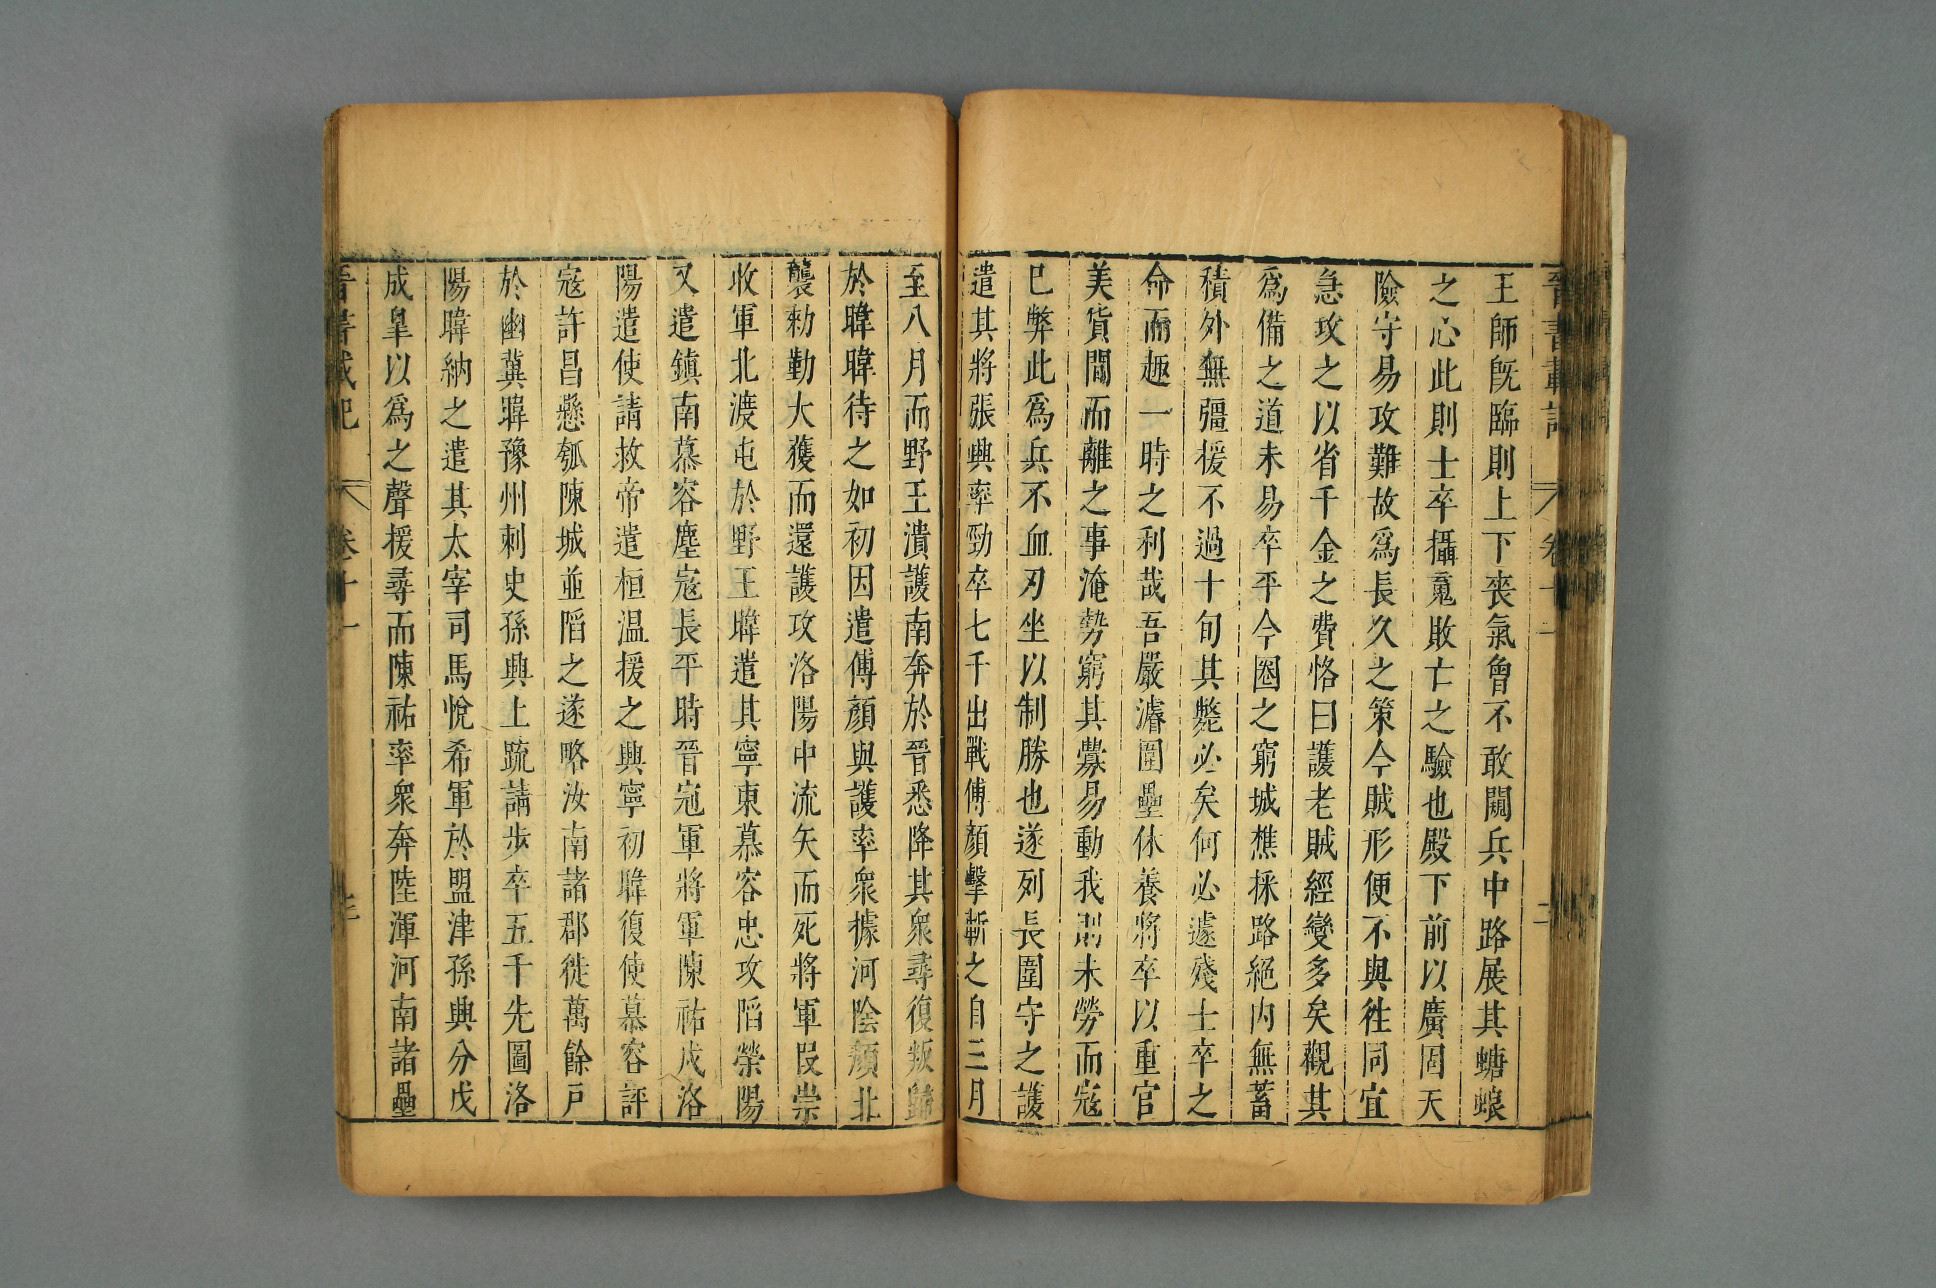 晉書載記 卷十一 二
王師旣臨則上下喪氣曾不敢闚兵中路展其螗蜋
之心此則士卒攝魂敗亡之驗也殿下前以廣固天
險守易攻難故爲長久之策今賊形便不與往同宜
急攻之以省千金之費恪曰護老賊經變多矣觀其
爲備之道未易卒平今圈之窮城樵採路絕內無蓄
積外無彊援不過十旬其斃必矣何必遽殘士卒之
命而趣一時之利哉吾嚴濬圍壘休養將卒以重官
美貨間而離之事淹勢窮其釁易動我則未勞而寇
已弊此爲兵不血刃坐以制勝也遂列長圍守之護
遣其將張興率勁卒七千出戰傅顏擊斬之自三月
至八月而野王潰護南奔於晉悉降其衆尋復叛歸
於暐暐待之如初因遣傅顏與護率衆據河陰顏北
襲勑勤大獲而還護攻洛陽中流矢而死將軍段崇
收軍北渡屯於野王暐遣其寧東慕容忠攻䧟滎陽
又遣鎮南慕容塵寇長平時晉冠軍將軍陳祐戍洛
陽遣使請救帝遣桓温援之興寧初暐復使慕容評
寇許昌懸瓠陳城並䧟之遂略汝南諸郡徙萬餘戸
於幽冀暐豫州刺史孫興上䟽請步卒五千先圖洛
陽暐納之遣其太宰司馬悅希軍於盟津孫興分戍
成臯以爲之聲援尋而陳祐率衆奔陸渾河南諸壘
晉書載記 卷十一 三